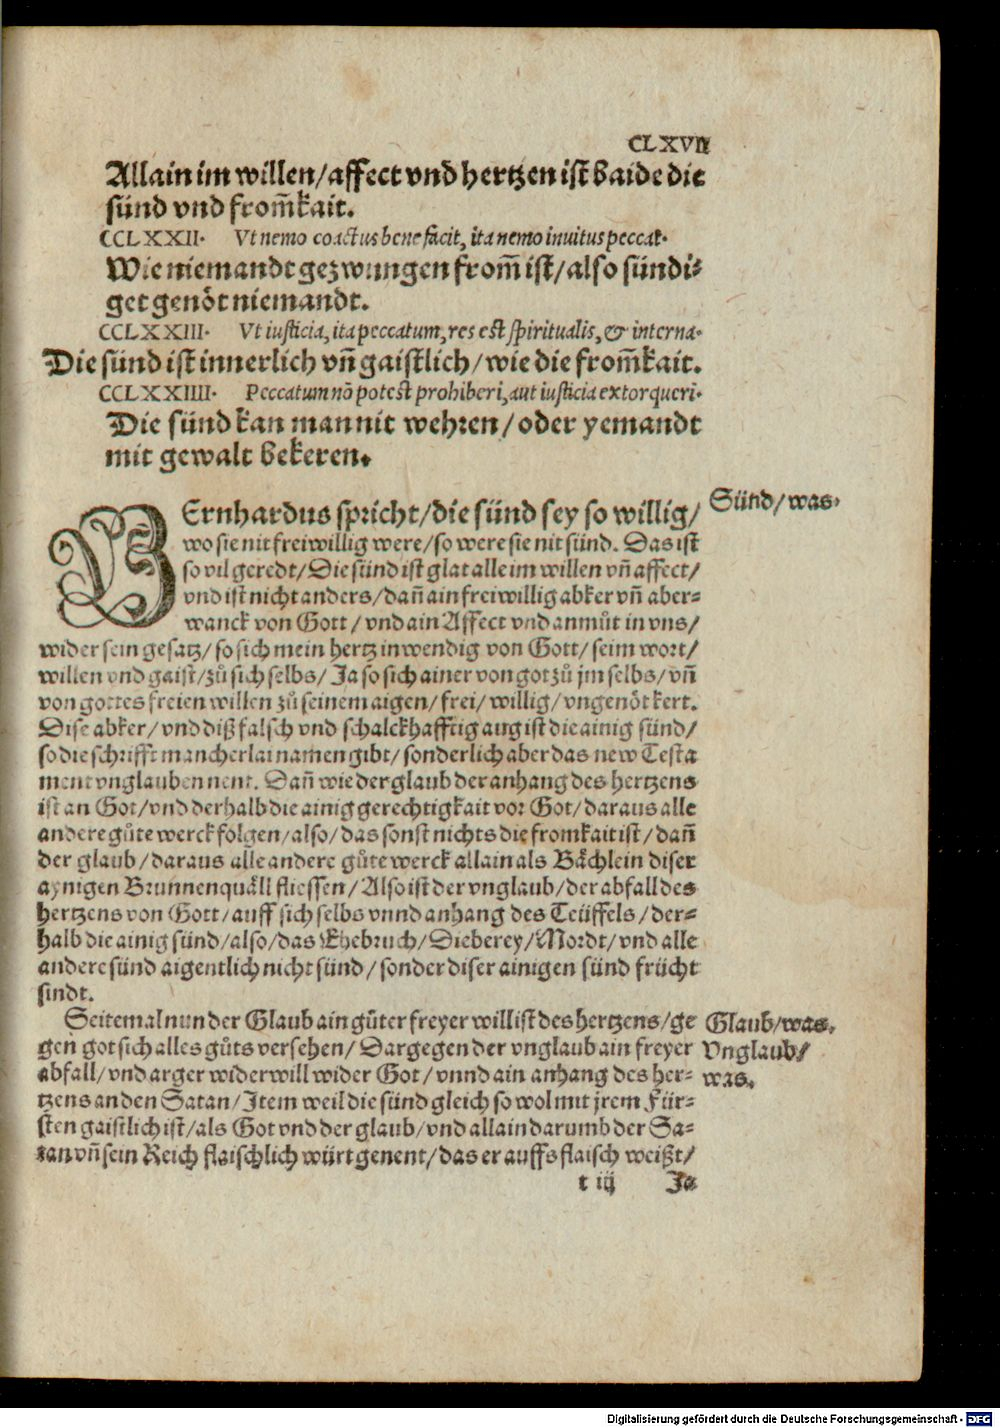 CLXVII
Allain im willen/affect vnd hertzen ist baide die
sünd vnd from̄kait.
CCLXXII. Vt nemo coactus bene facit, ita nemo inuitus peccat.
Wie niemandt gezwungen from̄ ist/also sündi-
get genöt niemandt.
CCLXXIII. Vt iusticia, ita peccatum, res est spiritualis, & interna.
Die sünd ist innerlich vn̄ gaistlich/wie die from̄kait.
CCLXXIIII. Peccatum nō potest prohiberi, aut iusticia extorqueri.
Die sünd kan man nit wehren/oder yemandt
mit gewalt bekeren.
BErnhardus spricht/die sünd sey so willig/
Sünd/was.
wo sie nit freiwillig were/so were sie nit sünd. Das ist
so vil geredt/Die sünd ist glat alle im willen vn̄ affect/
vnd ist nicht anders/dan̄ ain freiwillig abker vn̄ aber-
wanck von Gott/vnd ain Affect vnd anmůt in vns/
wider sein gesatz/so sich mein hertz inwendig von Gott/seim wort/
willen vnd gaist/zů sich selbs/Ja so sich ainer von got zů jm selbs/vn̄
von gottes freien willen zů seinem aigen/frei/willig/vngenöt kert.
Dise abker/vnd diß falsch vnd schalckhafftig aug ist die ainig sünd/
so die schrifft mancherlai namen gibt/sonderlich aber das new Testa
ment vnglauben nent. Dan̄ wie der glaub der anhang des hertzens
ist an Got/vnd derhalb die ainig gerechtigkait vor Got/daraus alle
andere gůte werck folgen/also/das sonst nichts die fromkait ist/dan̄
der glaub/daraus alle andere gůte werck allain als Bächlein diser
aynigen Brunnenquäll fliessen/Also ist der vnglaub/der abfall des
hertzens von Gott/auff sich selbs vnnd anhang des Teüffels/der-
halb die ainig sünd/also/das Ehebruch/Dieberey/Mordt/vnd alle
andere sünd aigentlich nicht sünd/sonder diser ainigen sünd frücht
sindt.
Seitemal nun der Glaub ain gůter freyer will ist des hertzens/ge
Glaub/was.
gen got sich alles gůts versehen/Dargegen der vnglaub ain freyer
Vnglaub/
abfall/vnd arger widerwill wider Got/vnnd ain anhang des her-
was.
tzens an den Satan/Item weil die sünd gleich so wol mit jrem Für-
sten gaistlich ist/als Got vnd der glaub/vnd allain darumb der Sa-
tan vn̄ sein Reich flaischlich würt genent/das er auffs flaisch weißt/
t iij Ja
Digitalisierung gefördert durch die Deutsche Forschungsgemeinschaft - DFG